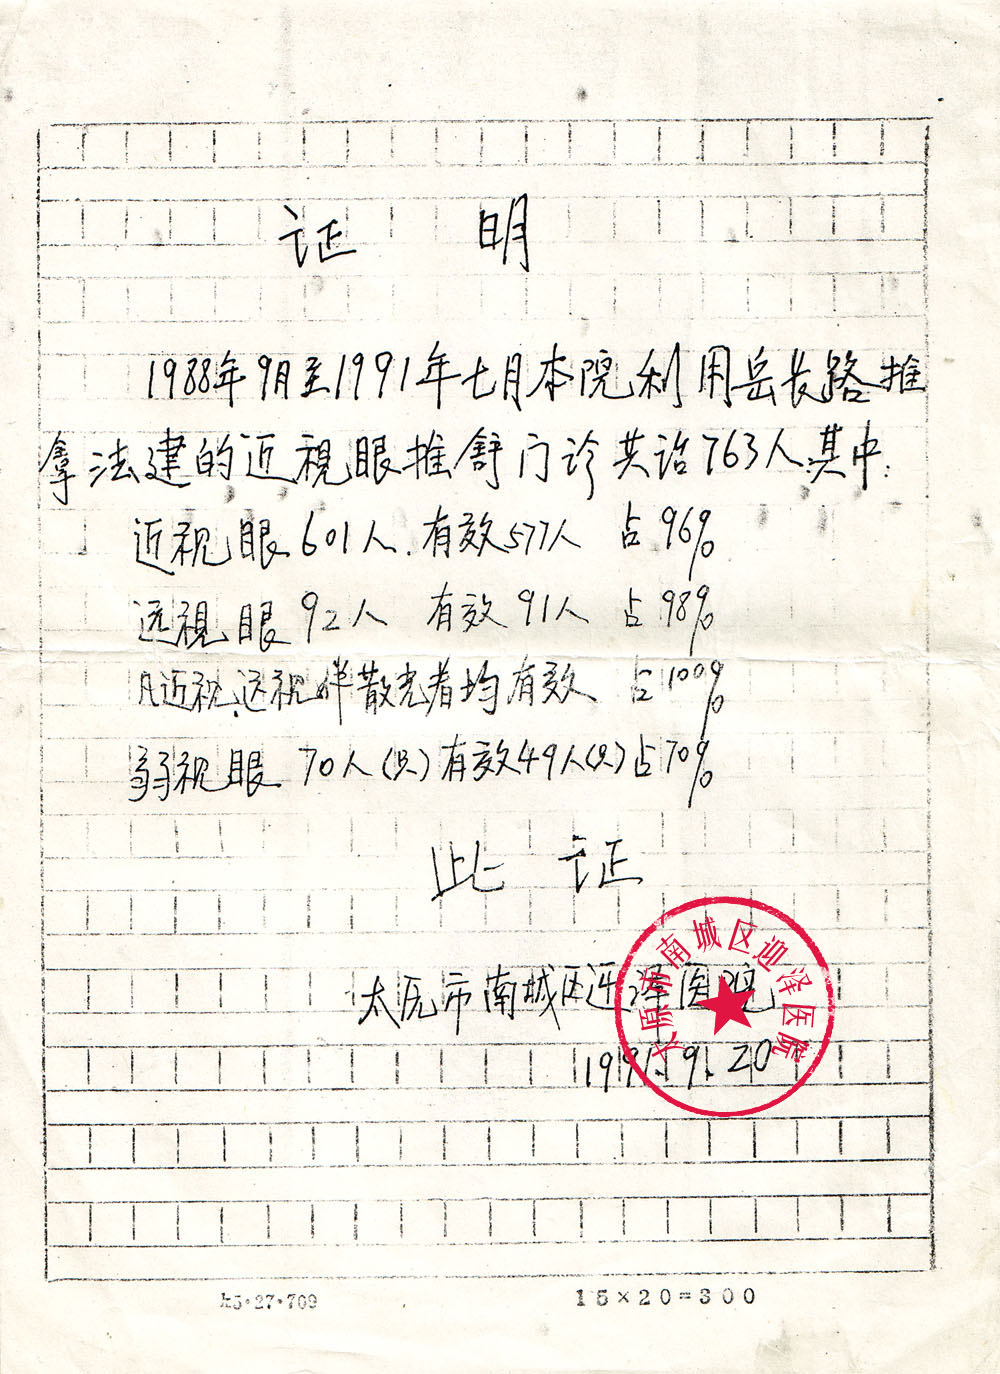 证 明
1988年9月至1991年七月本院利用岳长路推
拿法建的近視眼推舒门诊共治763人.其中:
近视眼601人.有效577人 占96%
远視眼92人 有效91人 占98%
凡近视、远视伴散光者均有效 占100%
弱视眼 70人(只)有效49人(只)占70%
此 证
太原市南城区迎泽医院
1991.9.20
太原市南城区迎泽医院
15×20=300